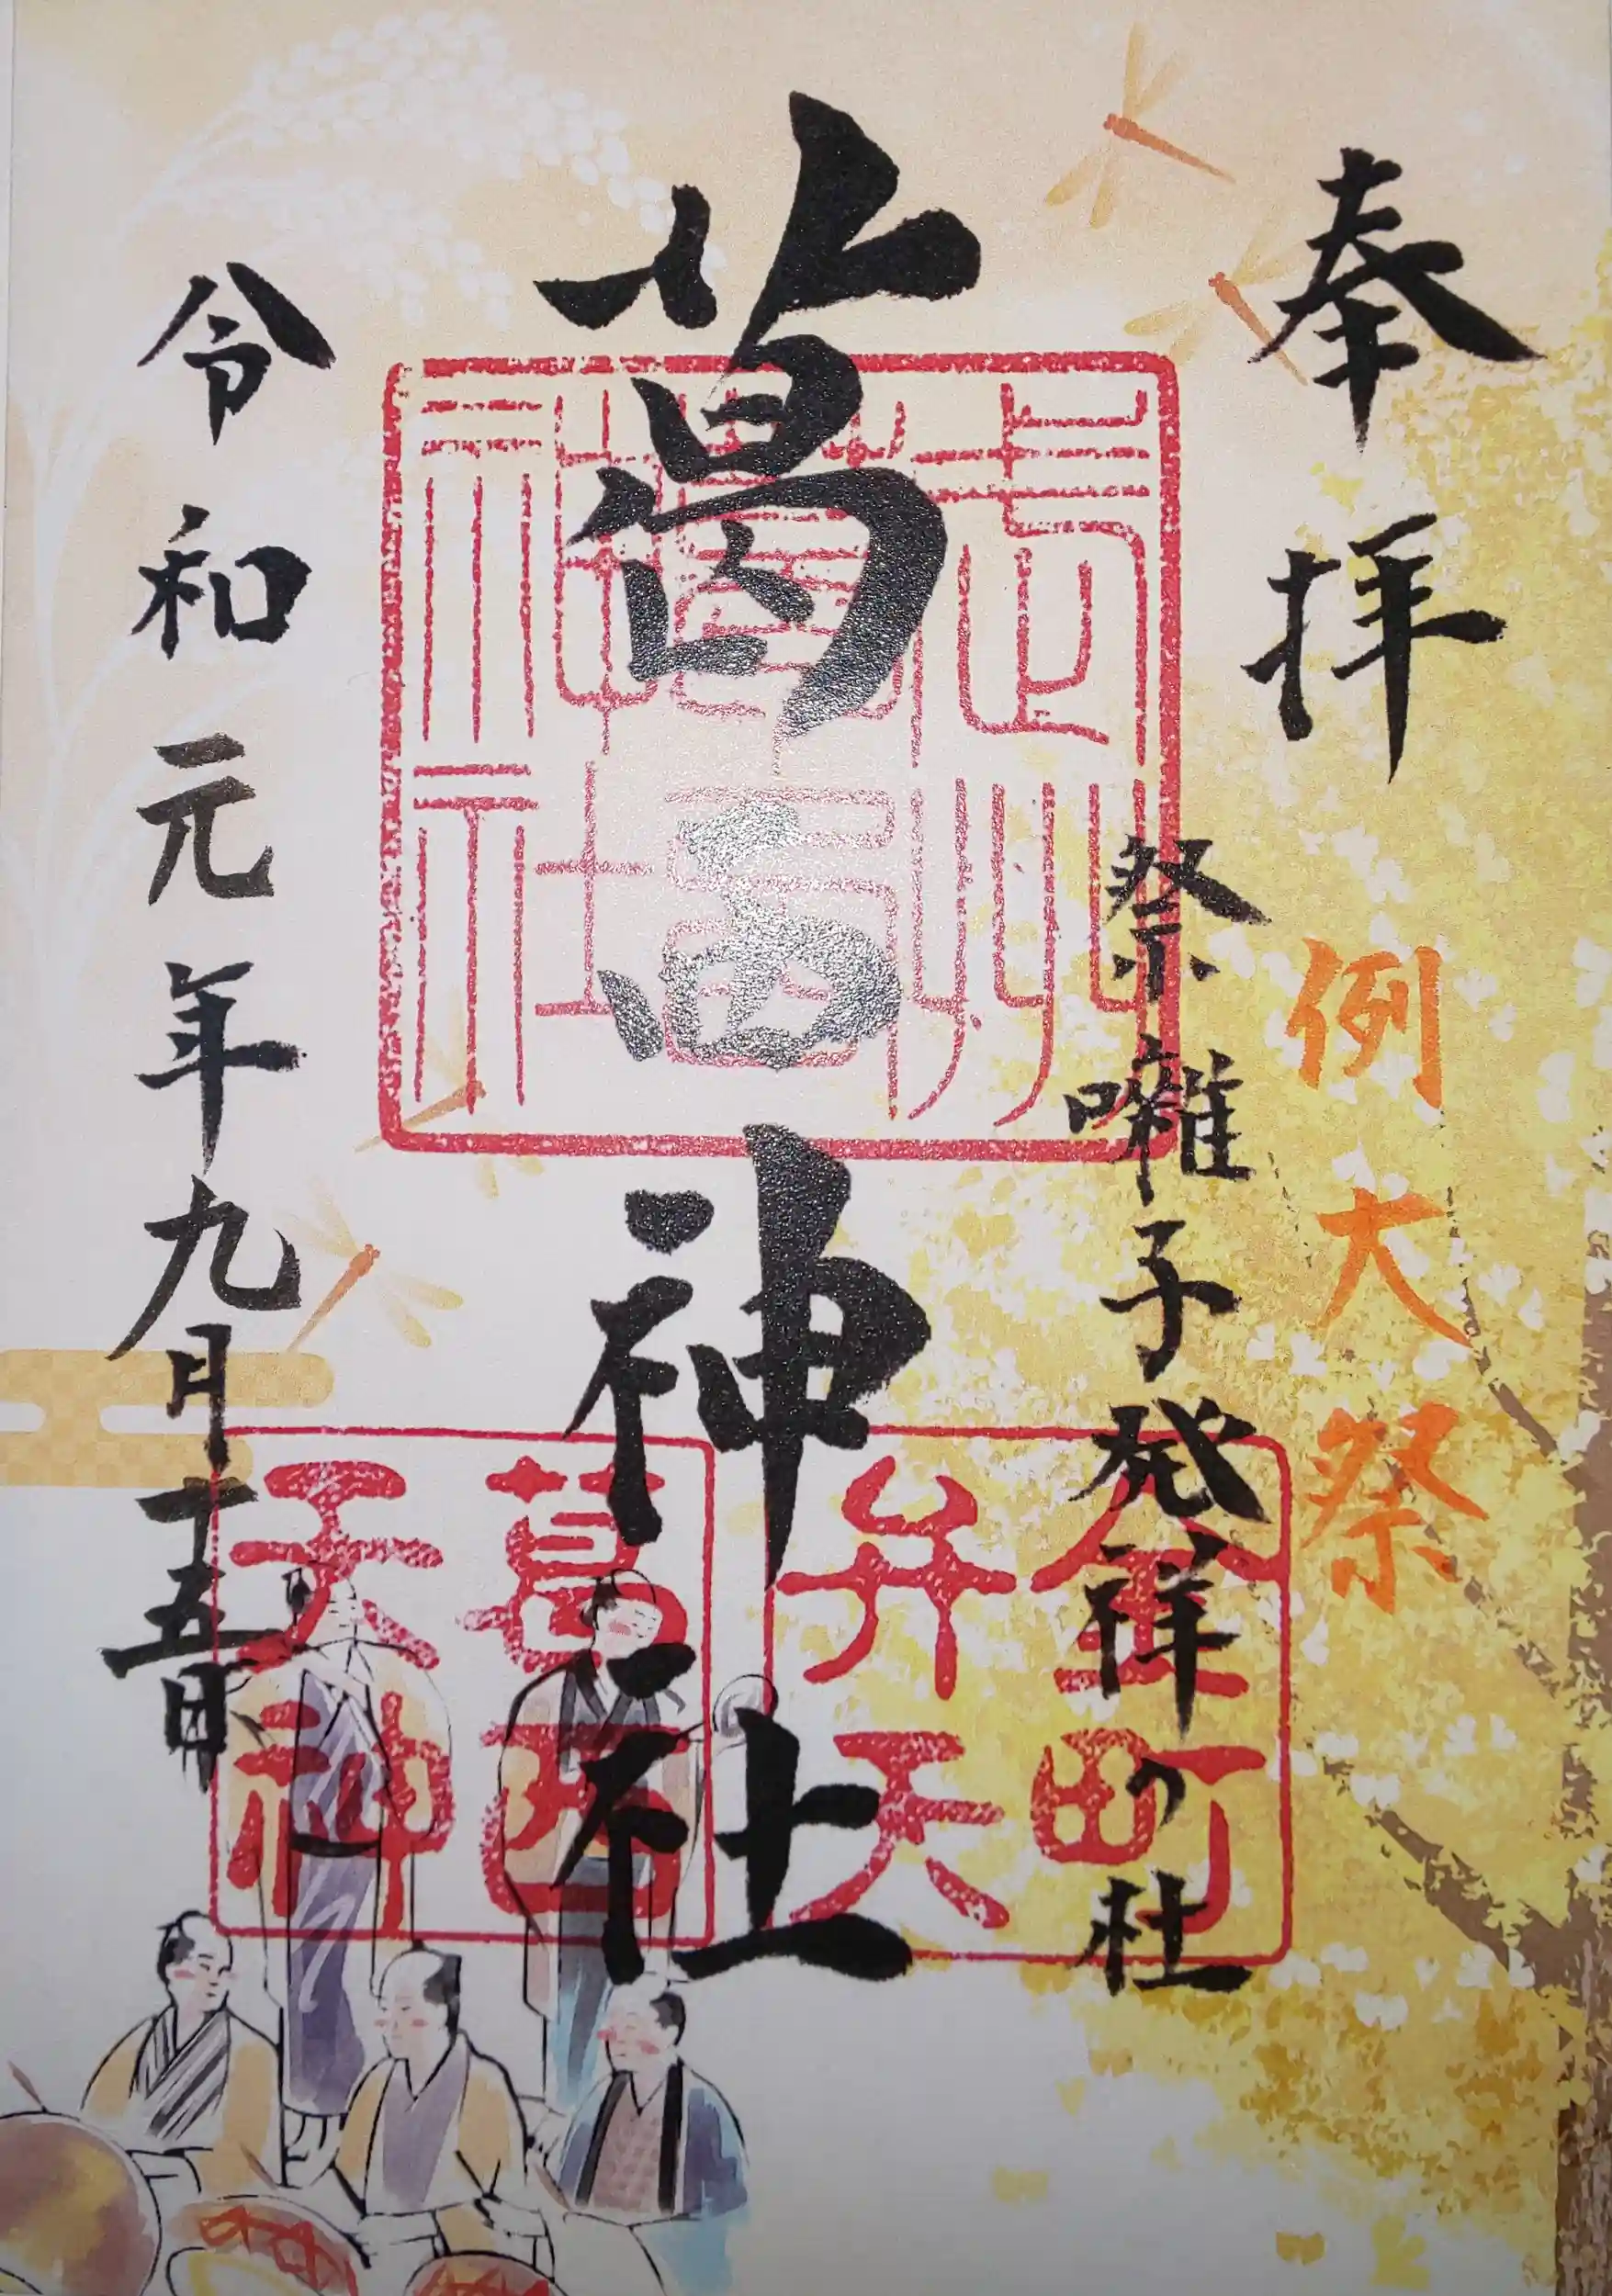 奉拝
例大祭
祭囃子発祥ノ社
葛西神社
金町
弁天
葛西
天神
令和元年九月十五日